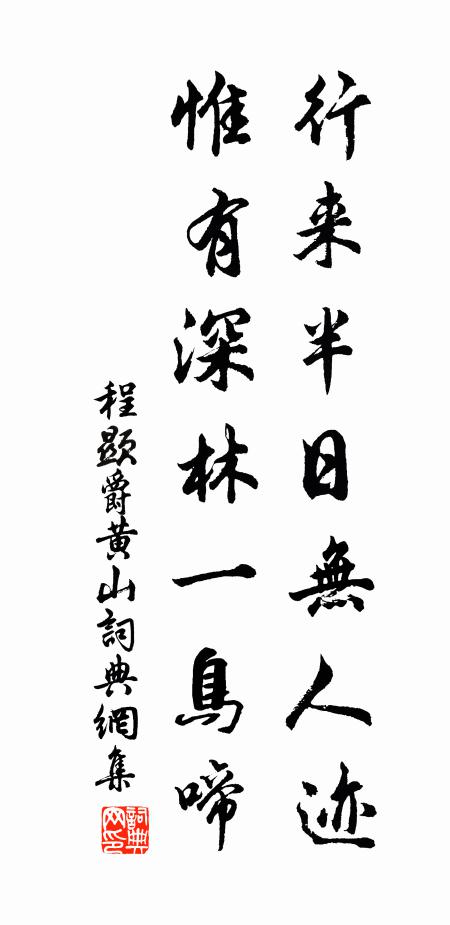 行来半日無人迹
惟有深林一鳥啼
程顕爵黄山詞典網集
詞典网印